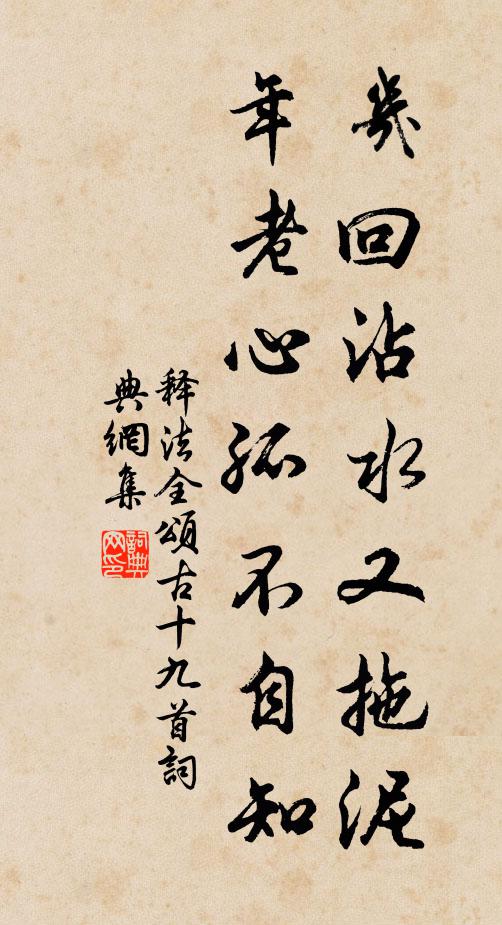 幾回沾水又拖泥
年老心孤不自知
释法全頌古十九首詞
典網集
詞典
网印